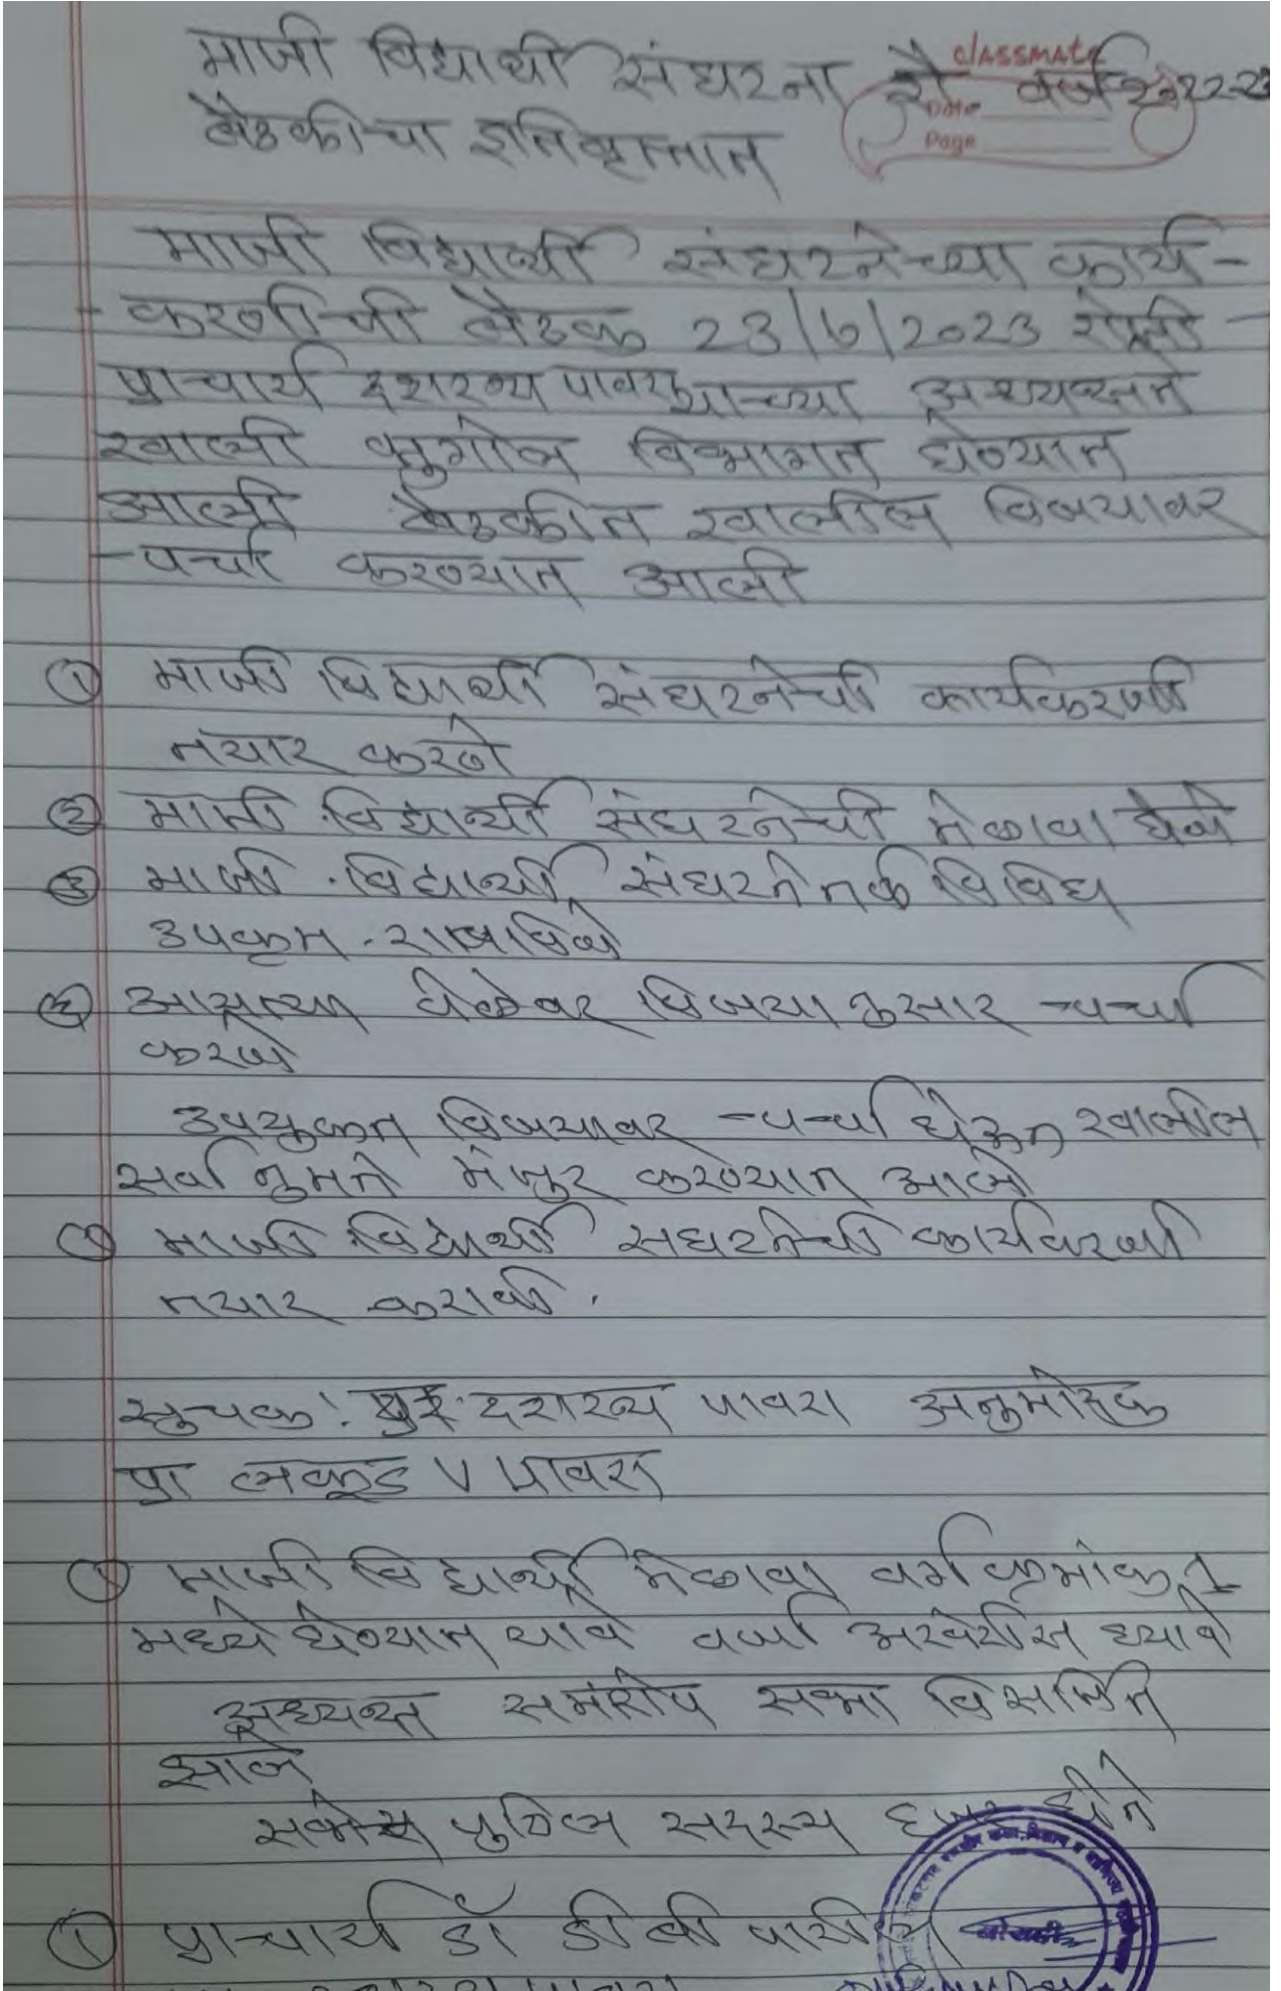 माजी विद्यार्थी संघटना शै वर्ष 2022-23
classmate
Date
Page
बैठकीचा इतिवृत्तात
माजी विद्यार्थी संघटनेच्या कार्य-
करणीची बैठक 23/6/2023 रोजी
प्राचार्य दशरथ पावरा यांच्या अध्यक्षते
खाली भुगोल विभागात घेण्यात
आली बैठकीत खालील विषयावर
चर्चा करण्यात आली
① माजी विद्यार्थी संघटनेची कार्यकरणी
तयार करणे
② माजी विद्यार्थी संघटनेची मेळावा घेणे
③ माजी विद्यार्थी संघटनेतर्फे विविध
उपक्रम राबविणे
④ आयत्या वेळेवर विषया नुसार चर्चा
करणे
उपयुक्त विषयावर चर्चा घेऊन खालील
सर्वानुमते मंजुर करण्यात आले
① माजी विद्यार्थी संघटनेची कार्यकरणी
तयार करावी.
सुचक: दशरथ पावरा अनुमोदक
प्रा लकडू V पावरा
माजी विद्यार्थी मेळावा वर्ग क्रमांक 1
मध्ये घेण्यात यावे वर्षा अखेरीस घ्यावे
अध्यक्ष समारोप सभा विसर्जित
झाले
सभेस पुढिल सदस्य हजर होते
① प्राचार्य डॉ डी बी पाटील